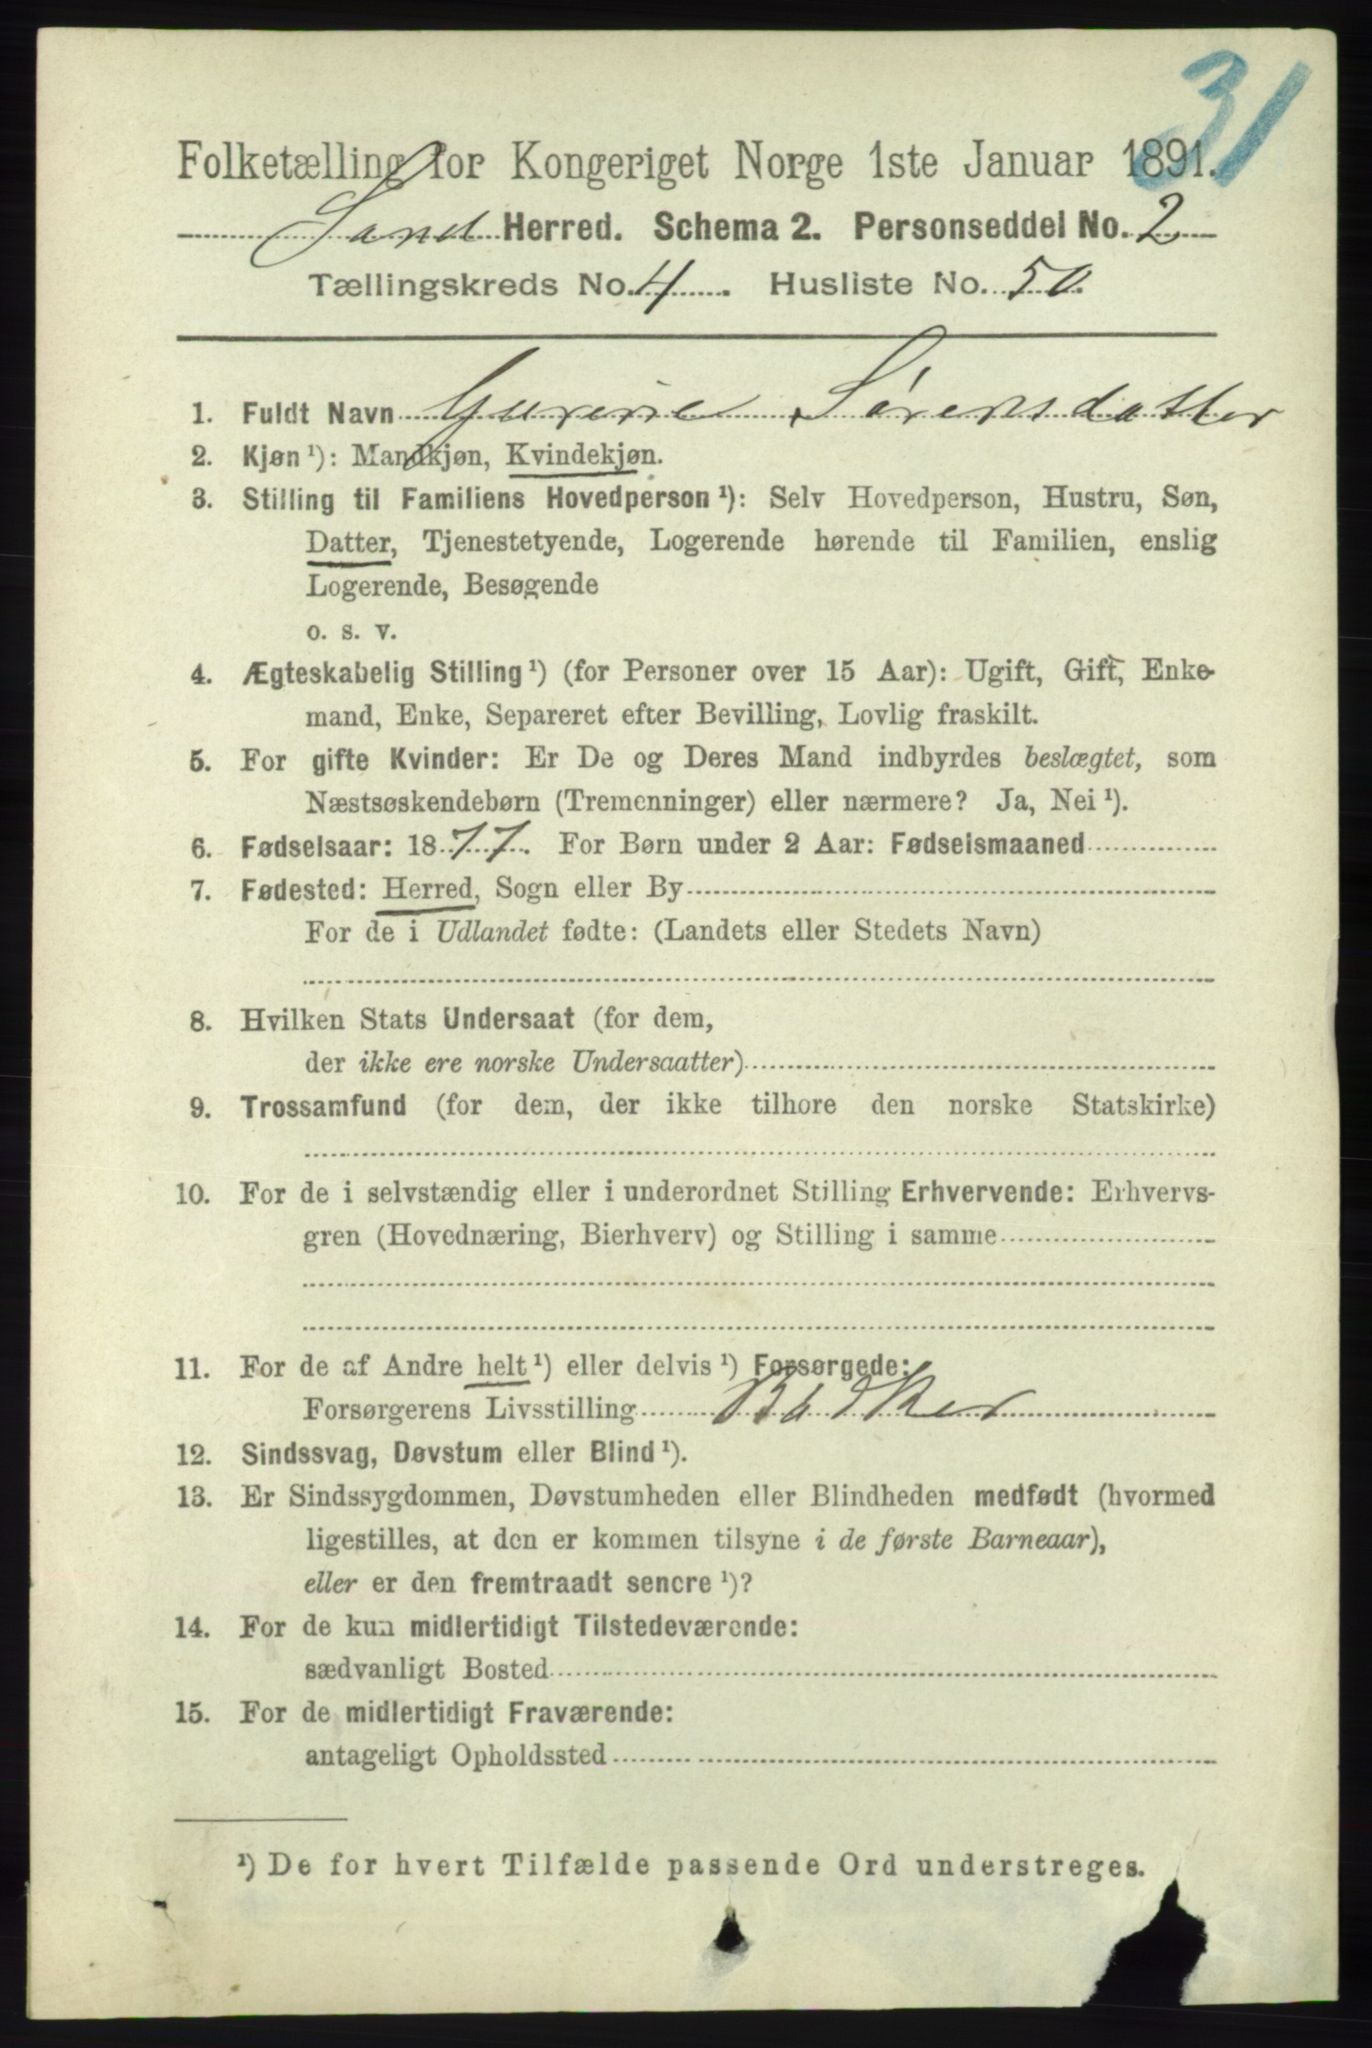 31
Folketælling for Kongeriget Norge 1ste Januar 1891.
Sand Herred. Schema 2. Personseddel No. 2
Tællingskreds No. 4. Husliste No. 50.
1. Fuldt Navn Gurine Sørensdatter
2. Kjøn ¹): Mandkjøn, Kvindekjøn.
3. Stilling til Familiens Hovedperson ¹): Selv Hovedperson, Hustru, Søn,
Datter, Tjenestetyende, Logerende hørende til Familien, enslig
Logerende, Besøgende
o. s. v.
4. Ægteskabelig Stilling ¹) (for Personer over 15 Aar): Ugift, Gift, Enke-
mand, Enke, Separeret efter Bevilling, Lovlig fraskilt.
5. For gifte Kvinder: Er De og Deres Mand indbyrdes beslægtet, som
Næstsøskendebørn (Tremenninger) eller nærmere? Ja, Nei ¹).
6. Fødselsaar: 1877. For Børn under 2 Aar: Fødselsmaaned
7. Fødested: Herred, Sogn eller By
For de i Udlandet fødte: (Landets eller Stedets Navn)
8. Hvilken Stats Undersaat (for dem,
der ikke ere norske Undersaatter)
9. Trossamfund (for dem, der ikke tilhøre den norske Statskirke)
10. For de i selvstændig eller i underordnet Stilling Erhvervende: Erhvervs-
gren (Hovednæring, Bierhverv) og Stilling i samme
11. For de af Andre helt ¹) eller delvis ¹) Forsørgede:
Forsørgerens Livsstilling Bødker
12. Sindssvag, Døvstum eller Blind ¹).
13. Er Sindssygdommen, Døvstumheden eller Blindheden medfødt (hvormed
ligestilles, at den er kommen tilsyne i de første Barneaar),
eller er den fremtraadt senere ¹)?
14. For de kun midlertidigt Tilstedeværende:
sædvanligt Bosted
15. For de midlertidigt Fraværende:
antageligt Opholdssted
¹) De for hvert Tilfælde passende Ord understreges.